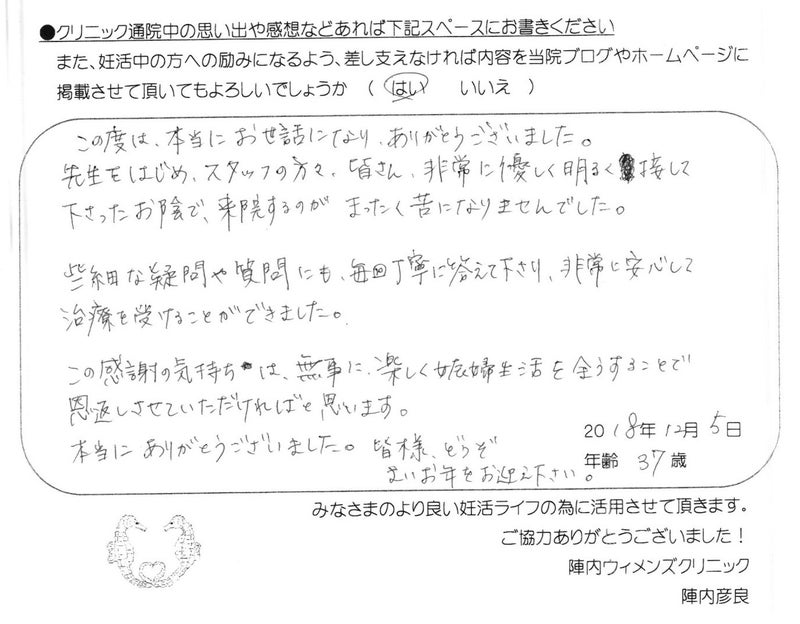 ●クリニック通院中の思い出や感想などあれば下記スペースにお書きください
また、妊活中の方への励みになるよう、差し支えなければ内容を当院ブログやホームページに
掲載させて頂いてもよろしいでしょうか ( はい いいえ )
この度は、本当にお世話になり、ありがとうございました。
先生をはじめ、スタッフの方々、皆さん、非常に優しく明るく接して
下さったお陰で、来院するのが まったく苦になりませんでした。
些細な疑問や質問にも、毎回丁寧に答えて下さり、非常に安心して
治療を受けることができました。
この感謝の気持ちは、無事に、楽しく妊婦生活を全うすることで
恩返しさせていただければと思います。
本当に ありがとうございました。皆様、どうぞ
よいお年をお迎え下さい。
2018年12月5日
年齢 37歳
みなさまのより良い妊活ライフの為に活用させて頂きます。
ご協力ありがとうございました！
陣内ウィメンズクリニック
陣内彦良